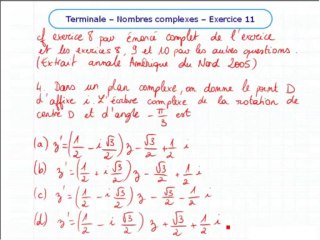 Terminale – Nombres complexes – Exercice 11
cf exercice 8 par énoncé complet de l'exercice
et les exercices 8, 9 et 10 par les autres questions.
(Extrait annale Amérique du Nord 2005)
4. Dans un plan complexe, on donne le point D
d'affixe i. L'écriture complexe de la rotation de
centre D et d'angle -π/3 est
(a) z' = (1/2 - i √3/2) z - √3/2 + 1/2 i
(b) z' = (1/2 + i √3/2) z - √3/2 + 1/2 i
(c) z' = (1/2 - i √3/2) z - √3/2 - 1/2 i
(d) z' = (1/2 - i √3/2) z + √3/2 + 1/2 i